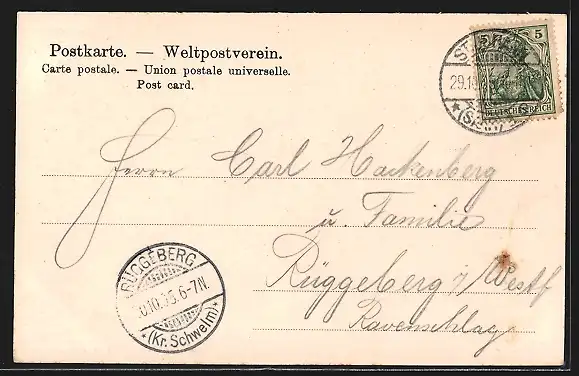 Postkarte. — Weltpostverein.
Carte postale. — Union postale universelle.
Post card.
5 5
DEUTSCHES REICH
29.10
Herrn Carl Hackenberg
u. Familie
Rüggeberg i/Westf
Ravenschlag
RÜGGEBERG
.10. 6-7N.
* (Kr. Schwelm) *